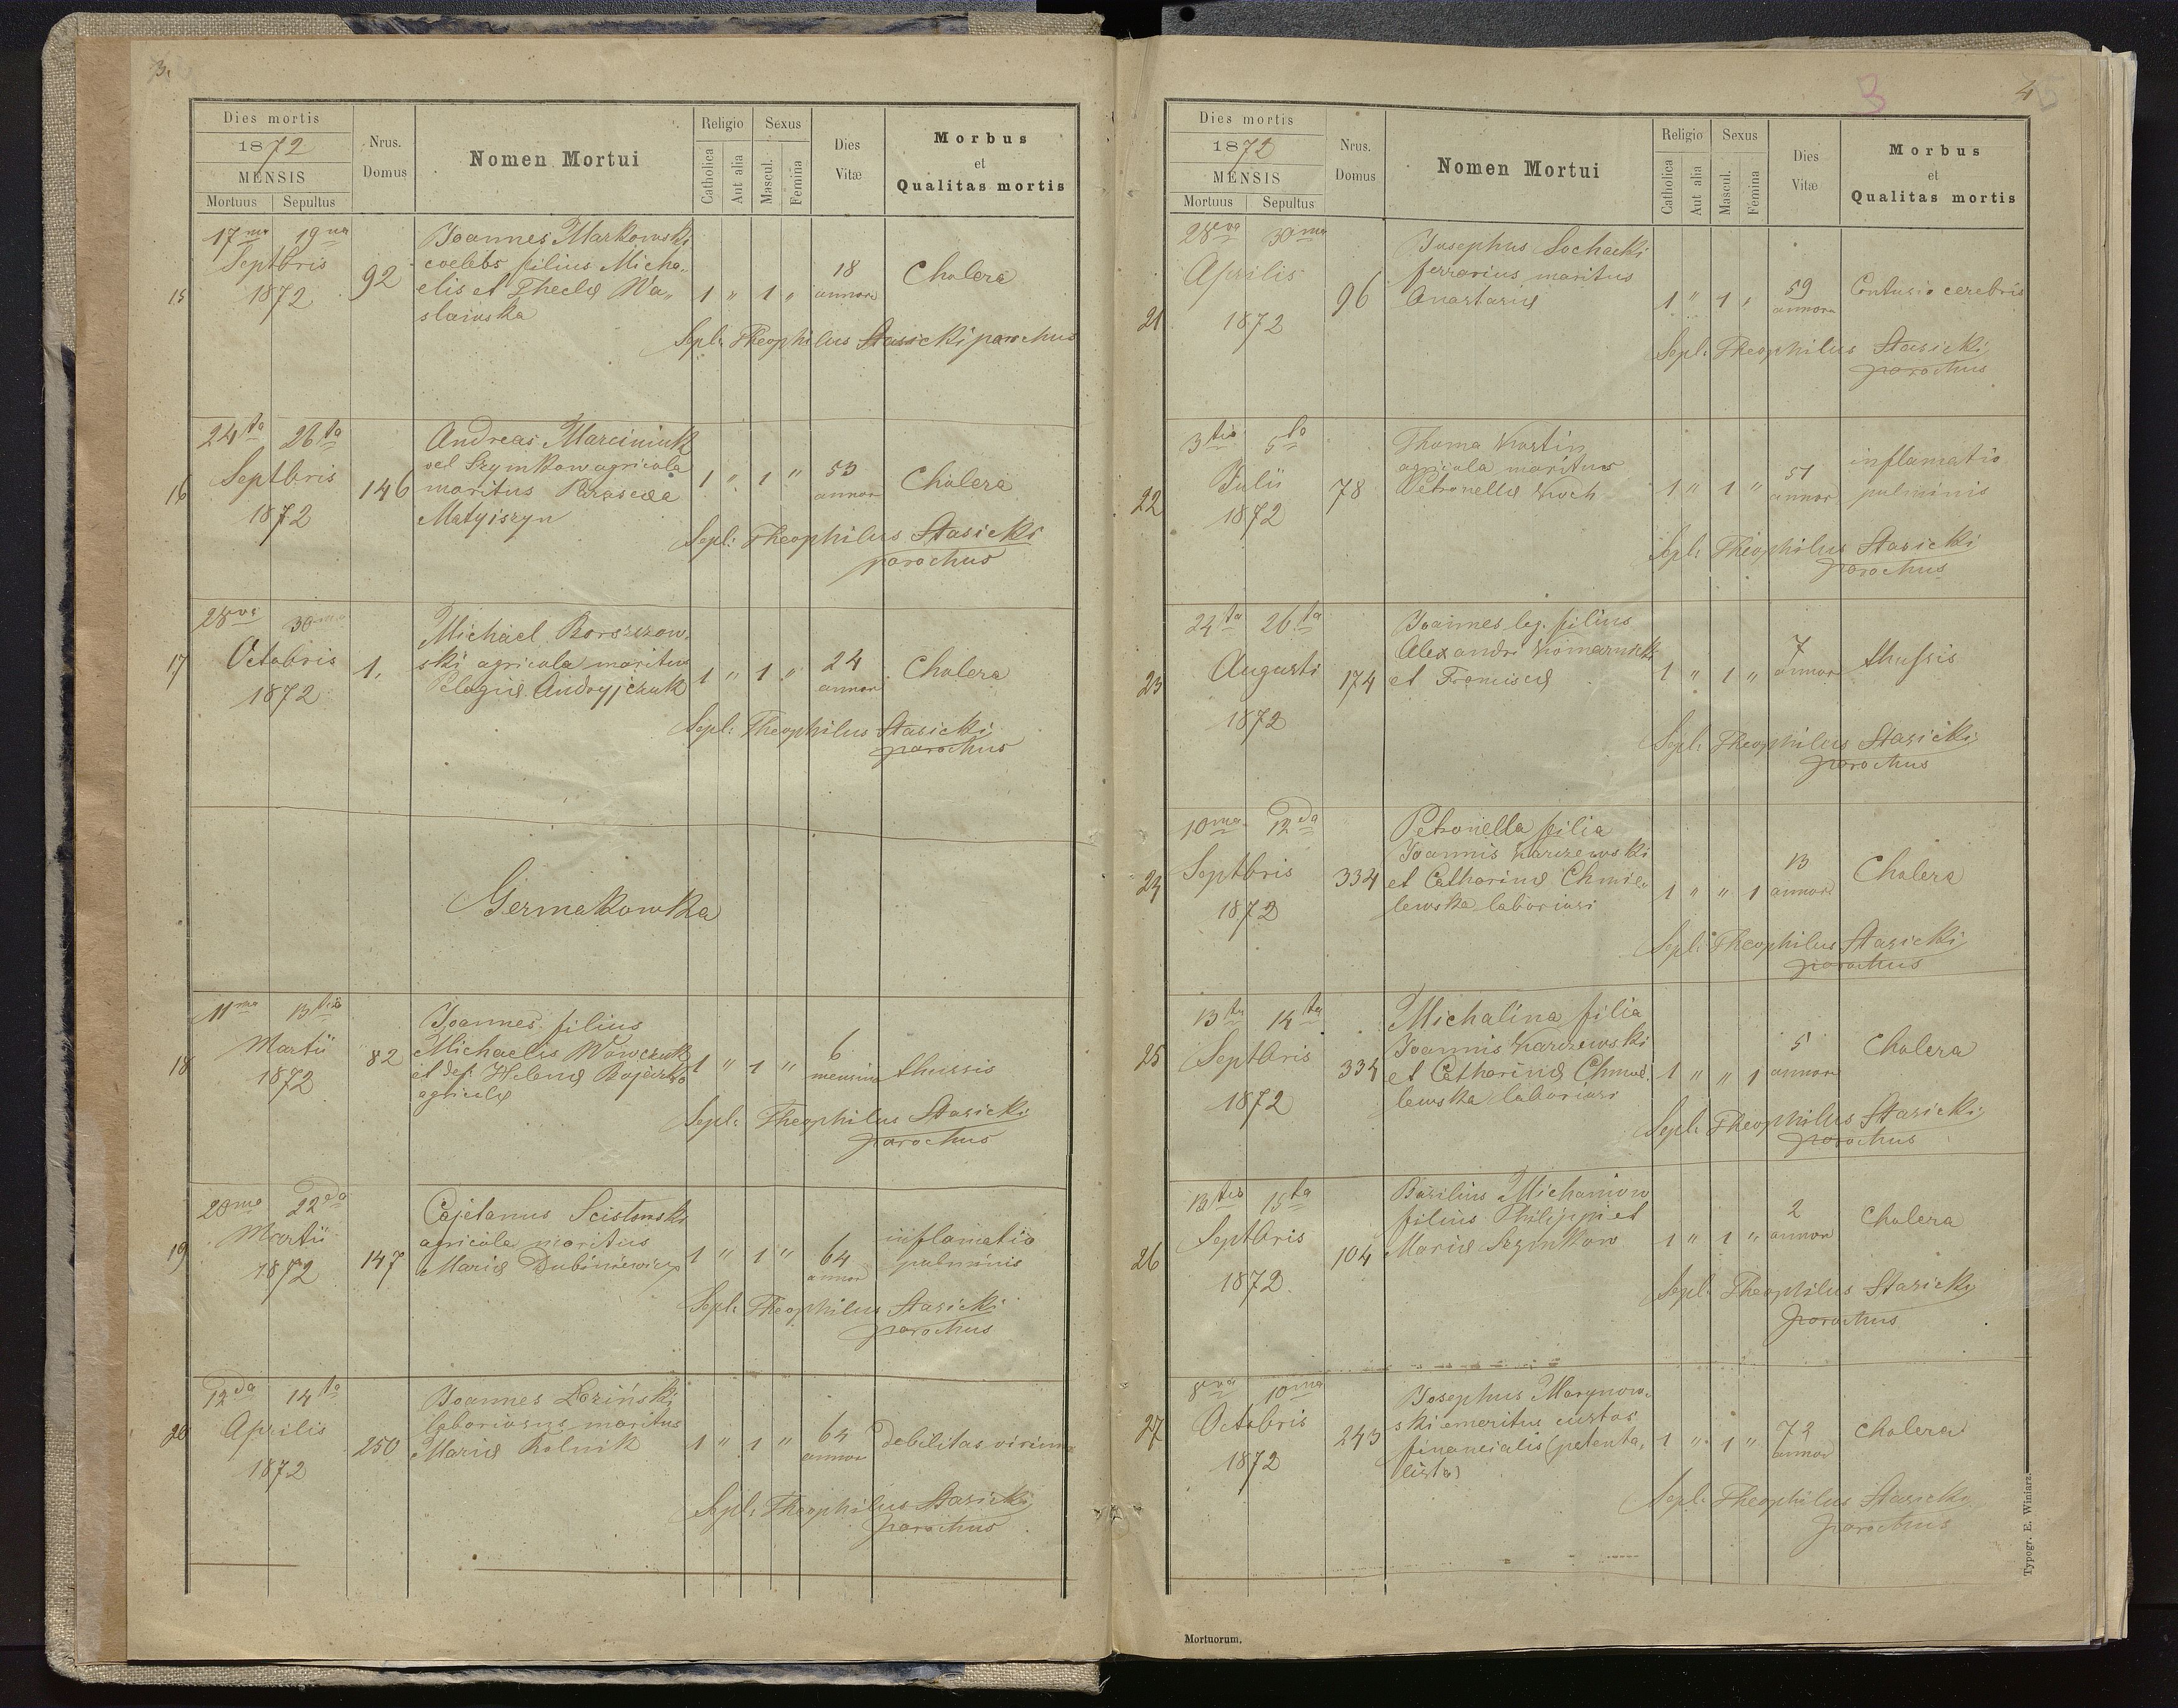 3.
Dies mortis
1872
MENSIS
Mortuus Sepultus
Nrus. Domus
Nomen Mortui
Religio
Catholica
Aut alia
Sexus
Mascul.
Femina
Dies Vitæ
Morbus
et
Qualitas mortis
17ma 19na
Septbris
1872
15
92
Joannes Markowski
coelebs filius Micha„
elis et Theclæ Wa„
slawska
1 „ 1 „
18
annor
Cholera
Sepl: Theophilus Stasicki parochus
24ta 26ta
Septbris
1872
16
146
Andreas Marciniuk
vel Szymkow agricola
maritus Parascea
Matyiszyn
1 „ 1 „
53
annor
Cholera
Sepl: Theophilus Stasicki
parochus
28va 30ma
Octobris
1872
17
1.
Michael Borszzow„
ski agricola maritus
Pelagiæ Andryjczuk
1 „ 1 „
24
annor
Cholera
Sepl: Theophilus Stasicki
parochus
Germakowka
11ma 13tia
Martii
1872
18
82
Joannes filius
Michaelis Wowczuk
et Helenæ
agricolæ
1 „ 1 „
6
mensium
thussis
Sepl: Theophilus Stasicki
parochus
20ma 22da
Martii
1872
19
147
Cajetanus
agricola maritus
Mariæ Dubiniewicz
1 „ 1 „
64
annor
inflamatio
pulminis
Sepl: Theophilus Stasicki
parochus
12da 14ta
Aprilis
1872
20
250
Joannes Łoziński
laboriosus maritus
Mariæ Rolnik
1 „ 1 „
64
annor
Debilitas virium
Sepl: Theophilus Stasicki
parochus
3
4
Dies mortis
1872
MENSIS
Mortuus Sepultus
Nrus. Domus
Nomen Mortui
Religio
Catholica
Aut alia
Sexus
Mascul.
Femina
Dies Vitæ
Morbus
et
Qualitas mortis
28va 30ma
Aprilis
1872
21
96
Josephus Sochacki
ferrarius maritus
Anastasiæ
1 „ 1 „
59
annor
Contusio cerebris
Sepl: Theophilus Stasicki
parochus
3tia 5ta
Julii
1872
22
78
Thoma
agricola maritus
Petronellæ Koch
1 „ 1 „
51
annor
inflamatio
pulminis
Sepl: Theophilus Stasicki
parochus
24ta 26ta
Augusti
1872
23
174
Joannes leg. filius
Alexandri Komarnicki
et Franciscæ
1 „ 1 „
7
annor
thussis
Sepl: Theophilus Stasicki
parochus
10ma 12da
Septbris
1872
24
334
Petronella filia
Joannis Karczewski
et Catharinæ Chmie„
lewska laboriosi
1 „ „ 1
13
annor
Cholera
Sepl: Theophilus Stasicki
parochus
13tia 14ta
Septbris
1872
25
334
Michalina filia
Joannis Karczewski
et Catharinæ Chmie„
lewska laboriosi
1 „ „ 1
5
annor
Cholera
Sepl: Theophilus Stasicki
parochus
13tia 15ta
Septbris
1872.
26
104
Basilius Michaniow
filius Philippi et
Mariæ Szymkow
1 „ 1 „
2
annor
Cholera
Sepl: Theophilus Stasicki
parochus
8va 10ma
Octobris
1872
27
243
Josephus Marynow„
ski emeritus custos
financialis (patenta„
lista)
1 „ 1 „
72
annor
Cholera
Sepl: Theophilus Stasicki
parochus
Mortuorum.
Typogr. E. Winiarz.